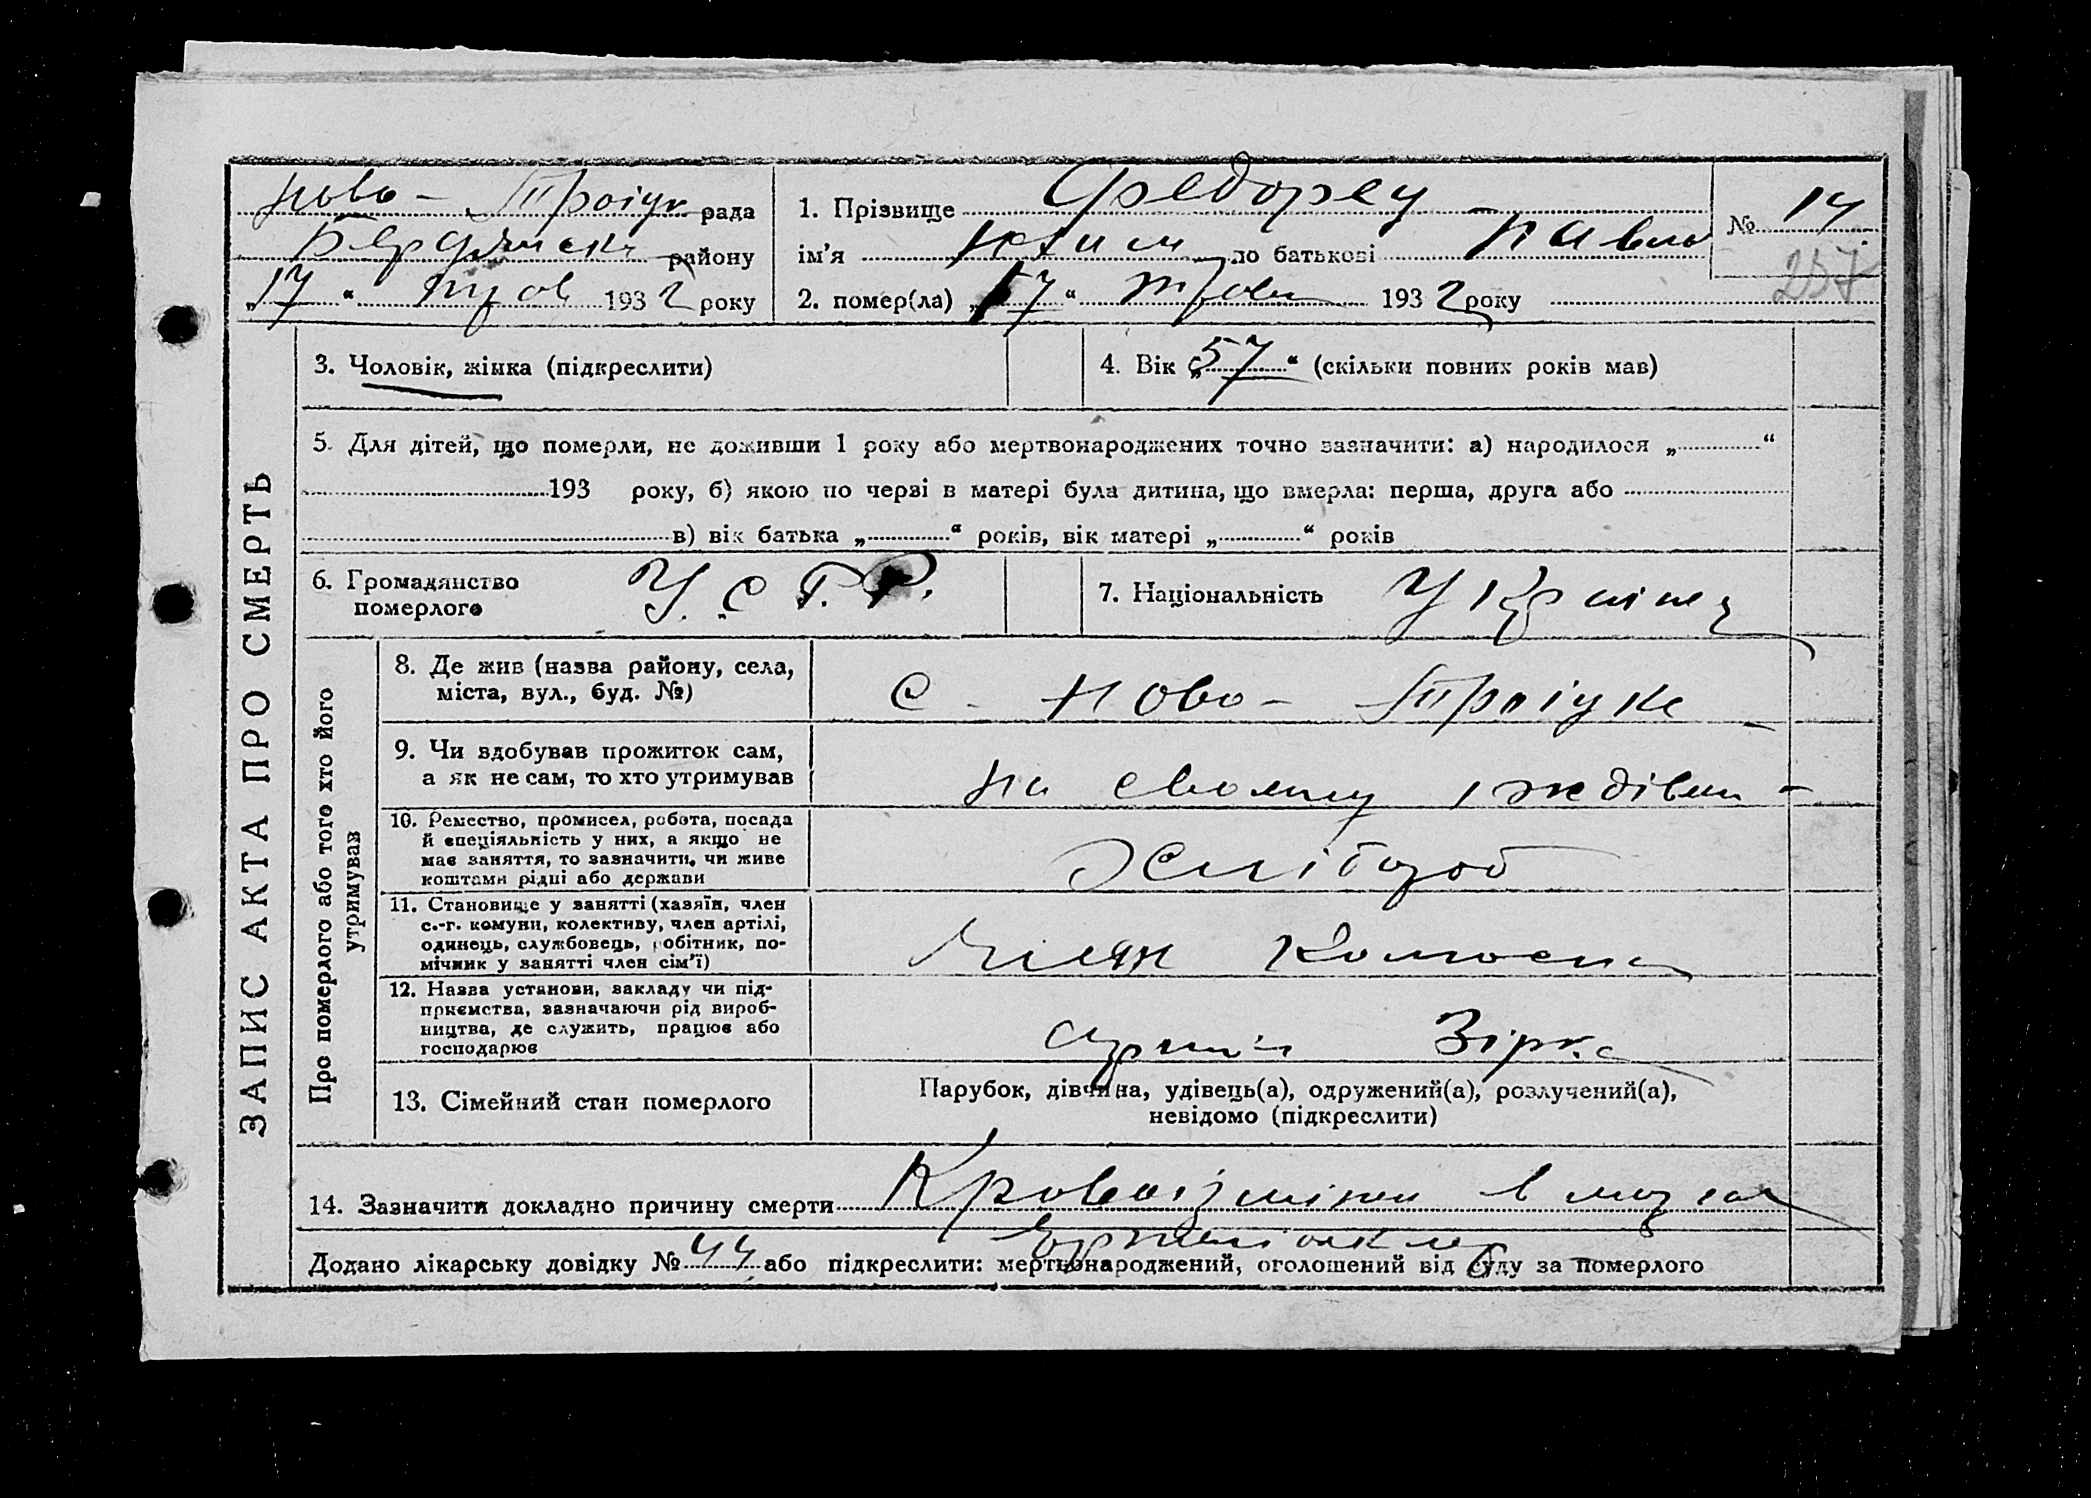 Ново-Троїцк рада
Бердянськ району
„17“ трав 1932 року
1. Прізвище Федорец
ім’я Юхим по батькові Павло
2. помер(ла) „17“ трав 1932 року
№ 14
257
ЗАПИС АКТА ПРО СМЕРТЬ
3. Чоловік, жінка (підкреслити)
4. Вік „57“ (скільки повних років мав)
5. Для дітей, що померли, не доживши 1 року або мертвонароджених точно зазначити: а) народилося „ “
193 року, б) якою по черзі в матері була дитина, що вмерла: перша, друга або
в) вік батька „ “ років, вік матері „ “ років
6. Громадянство
померлого
У.С.Р.Р.
7. Національність
Про померлого або того хто його
утримував
8. Де жив (назва району, села,
міста, вул., буд. №)
с. Ново-Троіцке
9. Чи вдобував прожиток сам,
а як не сам, то хто утримував
на своєму іждівен-
10. Ремество, промисел, робота, посада
й спеціяльність у них, а якщо не
має заняття, то зазначити, чи живе
коштами рідні або держави
Хлібороб
11. Становище у занятті (хазяїн, член
с.-г. комуни, колективу, член артілі,
одинець, службовець, робітник, по-
мічник у занятті член сім’ї)
Член
12. Назва установи, закладу чи під-
приємства, зазначаючи рід вироб-
ництва, де служить, працює або
господарює
Зірка
13. Сімейний стан померлого
Парубок, дівчина, удівець(а), одружений(а), розлучений(а),
невідомо (підкреслити)
14. Зазначити докладно причину смерти
в
Додано лікарську довідку № 44 або підкреслити: мертвонароджений, оголошений від суду за померлого